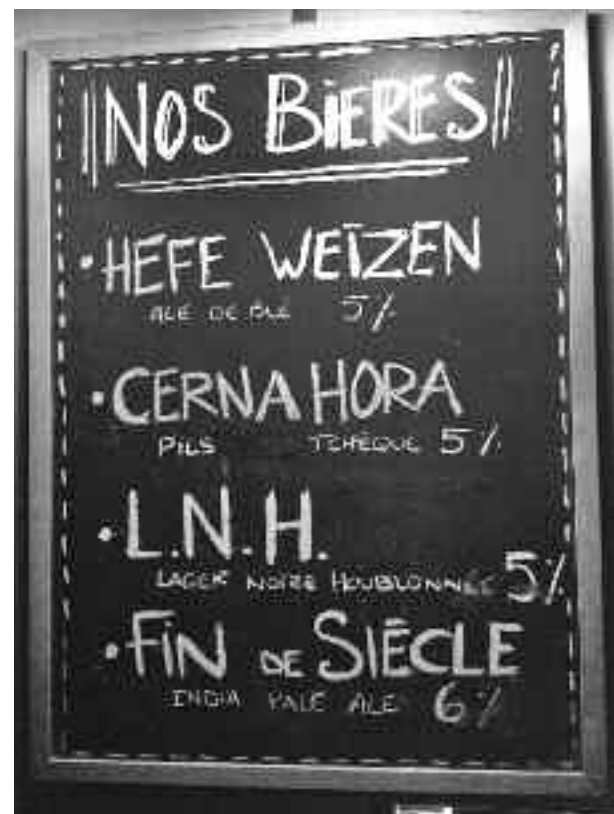 NOS BIERES
• HEFE WEIZEN
ALE DE BLÉ 5%
• CERNA HORA
PILS TCHÈQUE 5%
• L.N.H.
LAGER NOIRE HOUBLONNÉE 5%
• FIN DE SIÈCLE
INDIA PALE ALE 6%